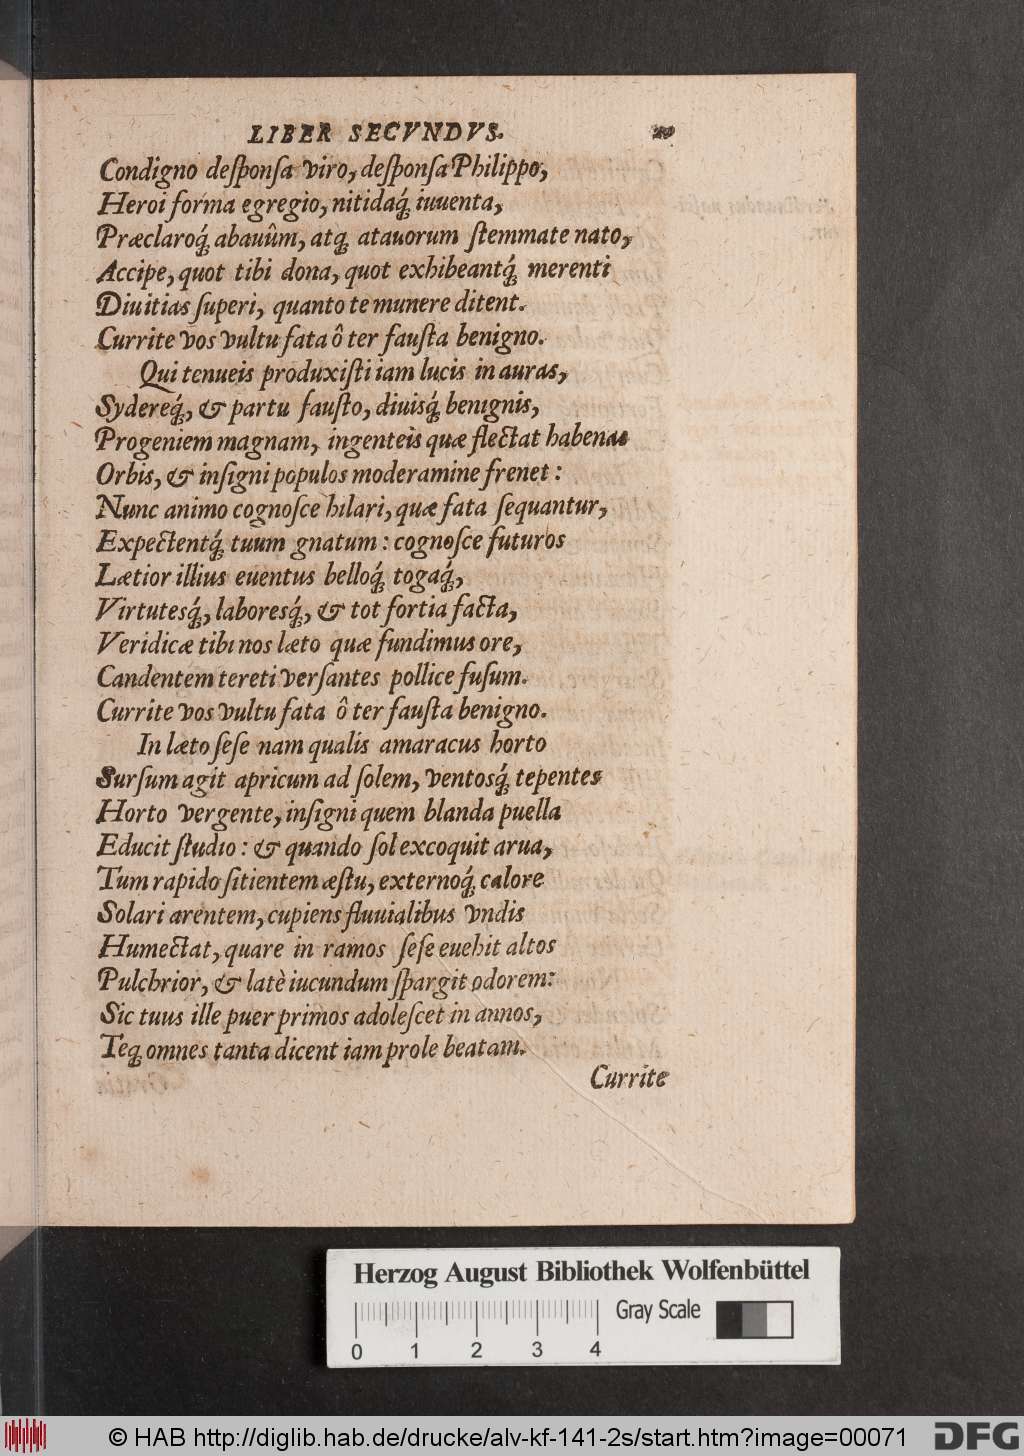 LIBER SECVNDVS. 29
Condigno desponsa viro, desponsa Philippo,
Heroi forma egregio, nitidaq́; iuuenta,
Præclaroq́; abauûm, atq; atauorum stemmate nato,
Accipe, quot tibi dona, quot exhibeantq́; merenti
Diuitias superi, quanto te munere ditent.
Currite vos vultu fata ô ter fausta benigno.
Qui tenueis produxisti iam lucis in auras,
Sydereq́;, & partu fausto, diuisq́; benignis,
Progeniem magnam, ingenteis quæ flectat habenas
Orbis, & insigni populos moderamine frenet:
Nunc animo cognosce hilari, quæ fata sequantur,
Expectentq́; tuum gnatum: cognosce futuros
Lætior illius euentus belloq́; togaq́;,
Virtutesq́;, laboresq́;, & tot fortia facta,
Veridicæ tibi nos læto quæ fundimus ore,
Candentem tereti versantes pollice fusum.
Currite vos vultu fata ô ter fausta benigno.
In læto sese nam qualis amaracus horto
Sursum agit apricum ad solem, ventosq́; tepentes
Horto vergente, insigni quem blanda puella
Educit studio: & quando sol excoquit arua,
Tum rapido sitientem æstu, externoq́; calore
Solari arentem, cupiens fluuialibus vndis
Humectat, quare in ramos sese euehit altos
Pulchrior, & latè iucundum spargit odorem:
Sic tuus ille puer primos adolescet in annos,
Teq; omnes tanta dicent iam prole beatam.
Currite
Herzog August Bibliothek Wolfenbüttel
Gray Scale
0 1 2 3 4
© HAB http://diglib.hab.de/drucke/alv-kf-141-2s/start.htm?image=00071
DFG